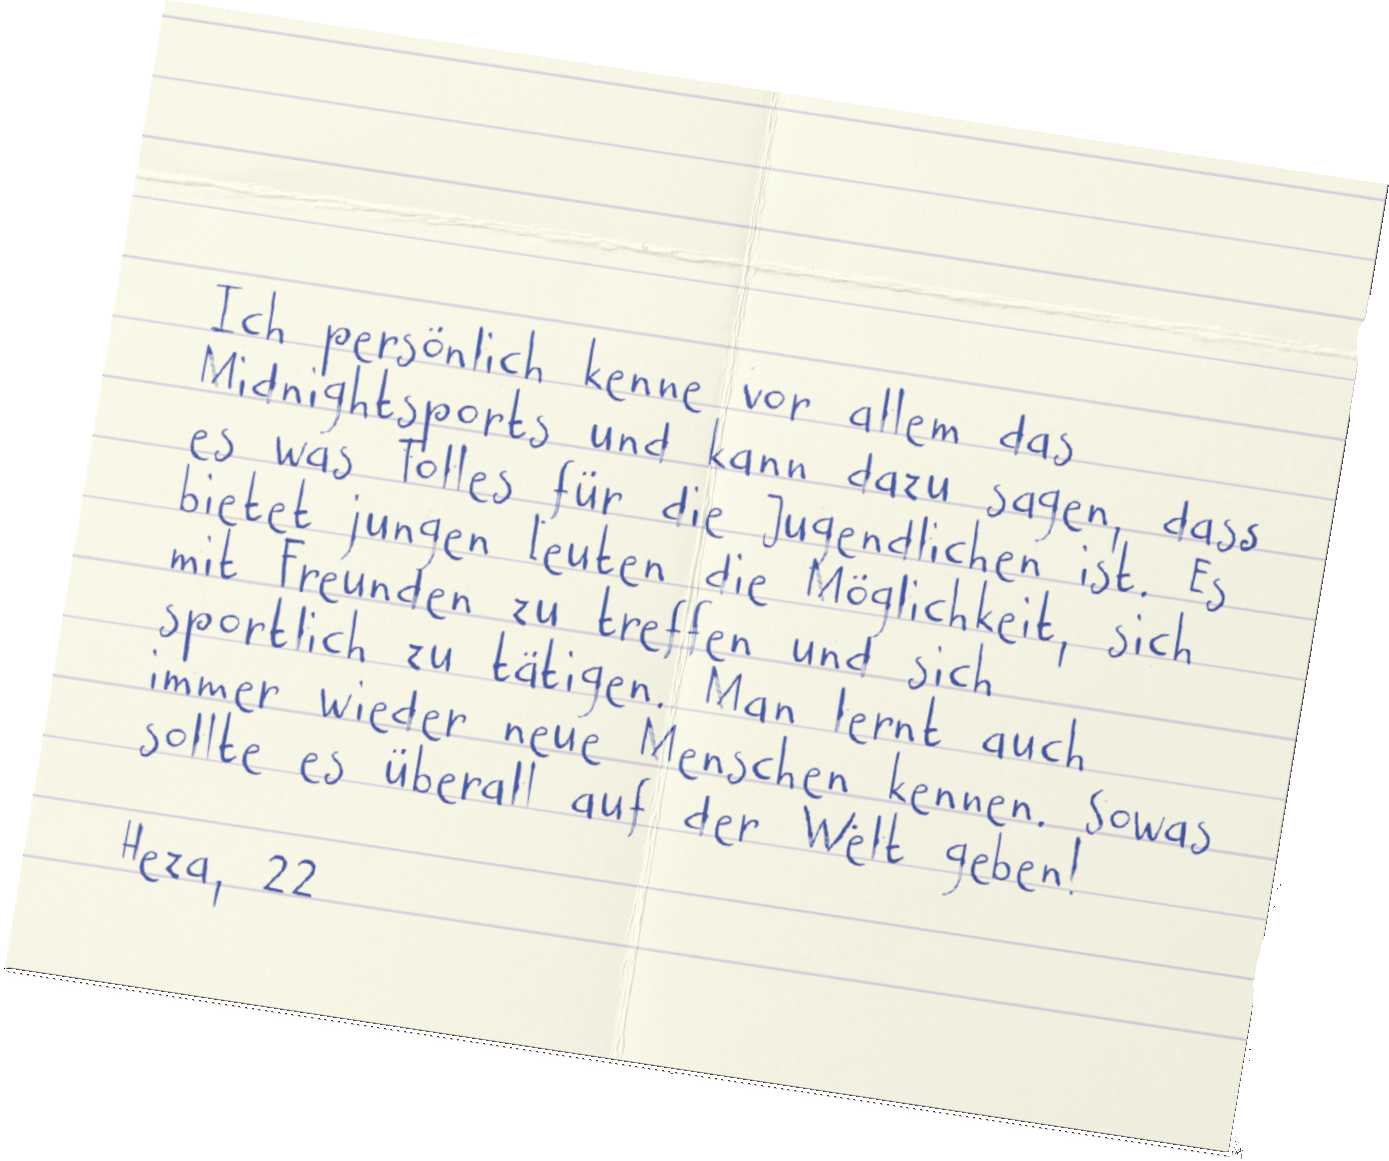 Ich persönlich kenne vor allem das
Midnightsports und kann dazu sagen, dass
es was Tolles für die Jugendlichen ist. Es
bietet jungen leuten die Möglichkeit, sich
mit Freunden zu treffen und sich
sportlich zu tätigen. Man lernt auch
immer wieder neue Menschen kennen. Sowas
sollte es überall auf der Welt geben!
Heza, 22